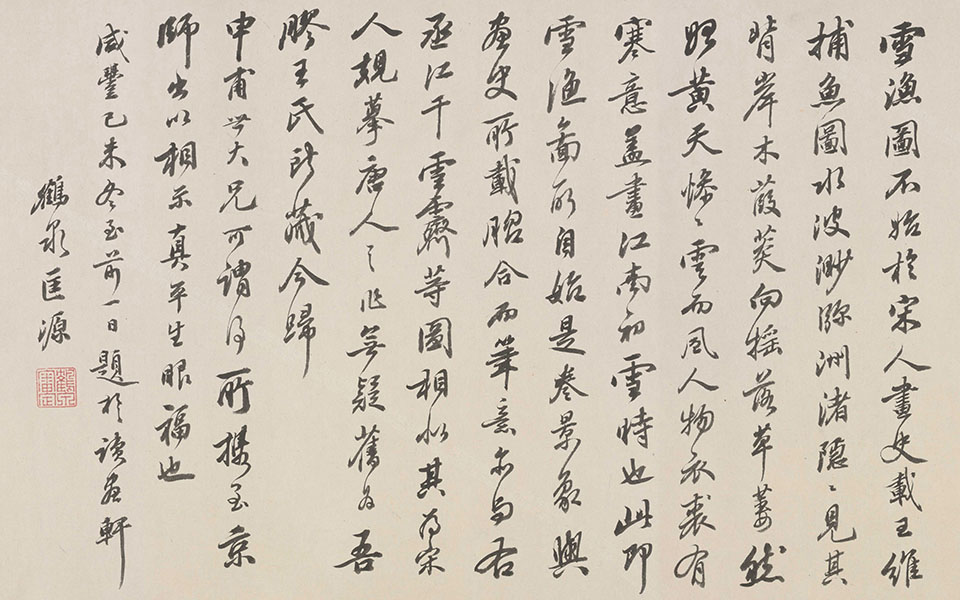 雪漁圖不始於宋人畫史載王維
捕魚圖水波渺瀰洲渚隱〻見其
背岸木葭菼向搖落草萋然
始黃天慘〻雲而風人物衣裘有
寒意蓋畫江南初雪時也此即
雪漁圖所自始是卷景象與
畫史所載脗合而筆意亦與右
丞江干雪霽等圖相似其為宋
人規摹唐人之作無疑舊為吾
膠王氏所藏今歸
申甫世大兄可謂得所攜至京
師出以相示真平生眼福也
咸豐己未冬至前一日題於讀畫軒
鶴泉匡源